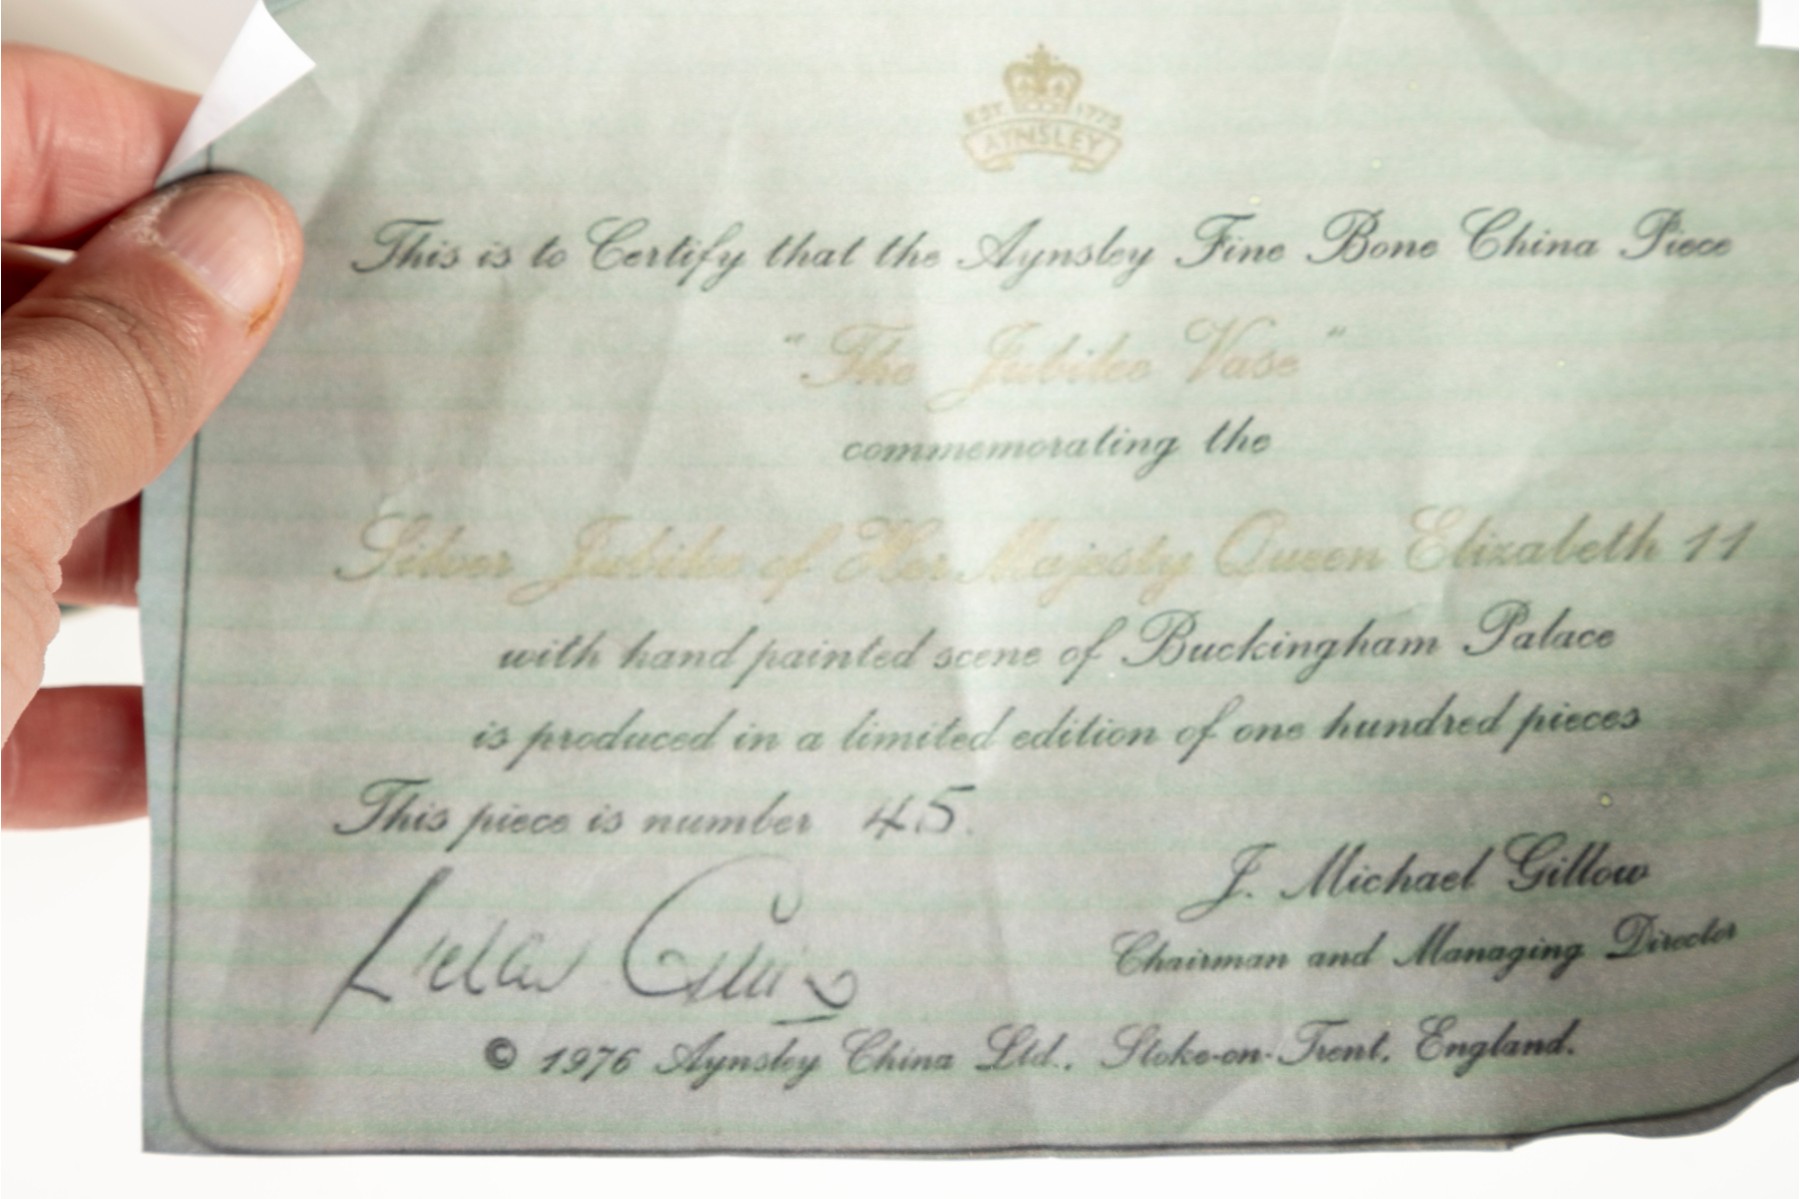 EST 1775
AYNSLEY
This is to Certify that the Aynsley Fine Bone China Piece
"The Jubilee Vase"
commemorating the
Silver Jubilee of Her Majesty Queen Elizabeth 11
with hand painted scene of Buckingham Palace
is produced in a limited edition of one hundred pieces
This piece is number 45
J. Michael Gillow
Chairman and Managing Director
© 1976 Aynsley China Ltd., Stoke-on-Trent, England.